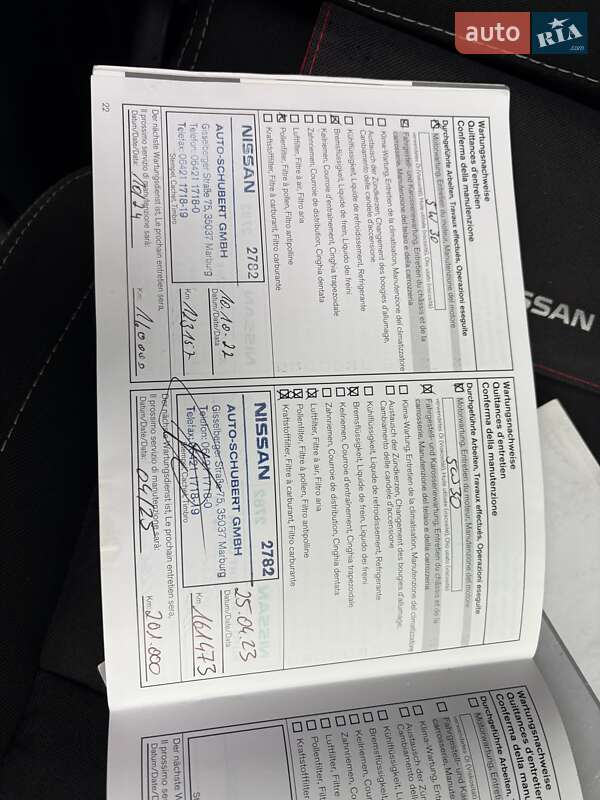 auto RIA .com
NISSAN
22
Wartungsnachweise
Quittances d'entretien
Conferma della manutenzione
Durchgeführte Arbeiten, Travaux effectués, Operazioni eseguite
Motorwartung, Entretien du moteur, Manutenzione del motore
5W30
Fahrgestell- und Karosseriewartung, Entretien du châssis et de la
carrosserie, Manutenzione del telaio e della carrozzeria
Klima-Wartung, Entretien de la climatisation, Manutenzione del climatizzatore
Austausch der Zündkerzen, Changement des bougies d'allumage,
Cambiamento delle candele d'accensione
Kühlflüssigkeit, Liquide de refroidissement, Refrigerante
Bremsflüssigkeit, Liquide de frein, Liquido dei freni
Keilriemen, Courroie d'entraînement, Cinghia trapezoidale
Zahnriemen, Courroie de distribution, Cinghia dentata
Luftfilter, Filtre à air, Filtro aria
Pollenfilter, Filtre à pollen, Filtro antipolline
Kraftstofffilter, Filtre à carburant, Filtro carburante
NISSAN 2782
AUTO-SCHUBERT GMBH
Gisselberger Straße 75, 35037 Marburg
Telefon: 06421 1718-0
Telefax: 06421 1718-19
Stempel, Cachet, Timbro
12.10.22
Datum/Date/Data
Km 123157
Der nächste Wartungsdienst ist, Le prochain entretien sera,
Il prossimo servizio di manutenzione sarà:
Datum/Date/Data: 10/24
Km: 160000
Wartungsnachweise
Quittances d'entretien
Conferma della manutenzione
Durchgeführte Arbeiten, Travaux effectués, Operazioni eseguite
Motorwartung, Entretien du moteur, Manutenzione del motore
5W30
Fahrgestell- und Karosseriewartung, Entretien du châssis et de la
carrosserie, Manutenzione del telaio e della carrozzeria
Klima-Wartung, Entretien de la climatisation, Manutenzione del climatizzatore
Austausch der Zündkerzen, Changement des bougies d'allumage,
Cambiamento delle candele d'accensione
Kühlflüssigkeit, Liquide de refroidissement, Refrigerante
Bremsflüssigkeit, Liquide de frein, Liquido dei freni
Keilriemen, Courroie d'entraînement, Cinghia trapezoidale
Zahnriemen, Courroie de distribution, Cinghia dentata
Luftfilter, Filtre à air, Filtro aria
Pollenfilter, Filtre à pollen, Filtro antipolline
Kraftstofffilter, Filtre à carburant, Filtro carburante
NISSAN 2782
AUTO-SCHUBERT GMBH
Gisselberger Straße 75, 35037 Marburg
Telefon: 06421 1718-0
Telefax: 06421 1718-19
Stempel, Cachet, Timbro
25.04.23
Datum/Date/Data
Km 161473
Der nächste Wartungsdienst ist, Le prochain entretien sera,
Il prossimo servizio di manutenzione sarà:
Datum/Date/Data: 04/25
Km: 201.000
Wartungsnachweise
Quittances d'entretien
Conferma della
Durchgeführte Arbeiten,
Motorwartung, Entretien
Fahrgestell- und
carrosserie,
Klima-Wartung,
Austausch der
Cambiamento
Kühlflüssigkeit,
Bremsflüssigkeit,
Keilriemen,
Zahnriemen,
Luftfilter, Filtre
Pollenfilter, Filtre
Kraftstofffilter,
Der nächste
Il prossimo
Datum/Date/